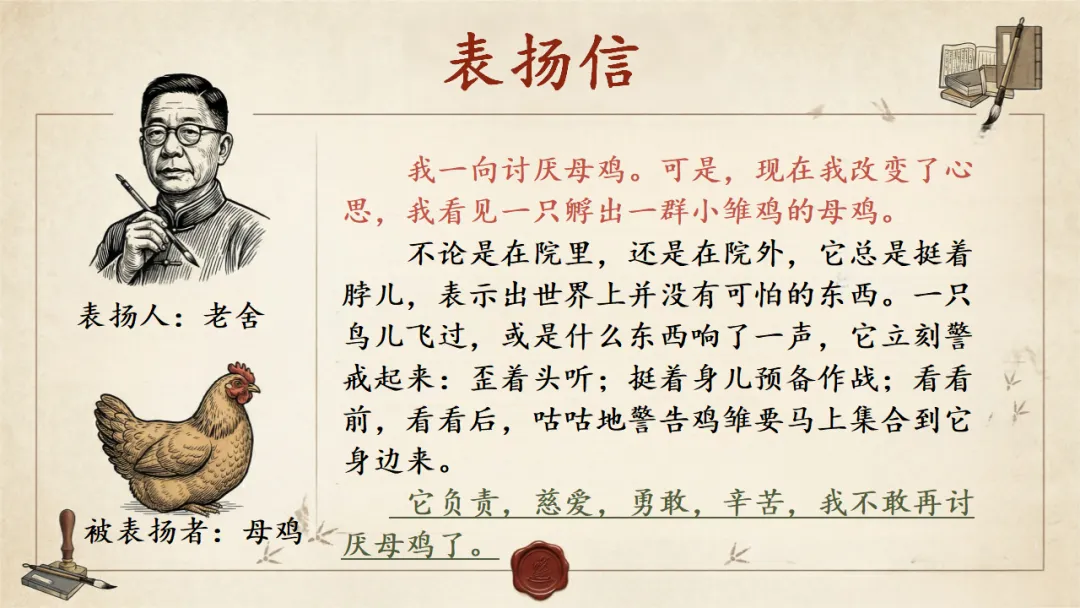 表扬信
我一向讨厌母鸡。可是，现在我改变了心
思，我看见一只孵出一群小雏鸡的母鸡。
不论是在院里，还是在院外，它总是挺着
脖儿，表示出世界上并没有可怕的东西。一只
鸟儿飞过，或是什么东西响了一声，它立刻警
戒起来：歪着头听；挺着身儿预备作战；看看
前，看看后，咕咕地警告鸡雏要马上集合到它
身边来。
它负责，慈爱，勇敢，辛苦，我不敢再讨
厌母鸡了。
表扬人：老舍
被表扬者：母鸡